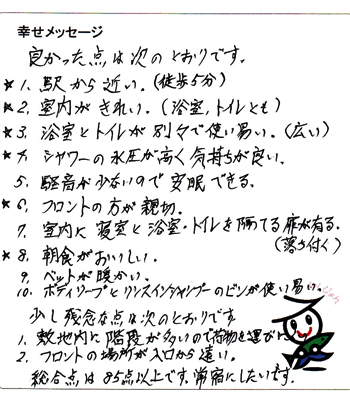 幸せメッセージ
良かった点は次のとおりです。
★1、駅から近い。(徒歩5分)
★2、室内がきれい。(浴室、トイレとも)
★3、浴室とトイレが別々で使い易い。(広い)
★4、シャワーの水圧が高く気持ちが良い。
5、騒音が少ないので安眠できる。
★6、フロントの方が親切。
7、室内に寝室と浴室・トイレを隔てる扉が有る。
(落ち付く)
★8、朝食がおいしい。
9、ベットが暖かい。
10、ボディソープとリンスインシャンプーのビンが使い易い。
少し残念な点は次のとおりです
1、敷地内に階段が多いので荷物を運びに
2、フロントの場所が入口から遠い。
総合点は85点以上です。常宿にしたいです。